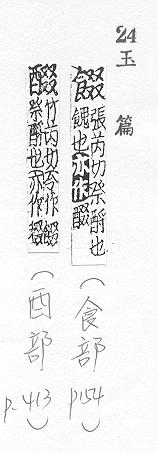 24玉篇
餟張芮切祭酹也
餽也亦作醊
(食部 p154)
醊竹芮切
祭酹也亦作餟
(酉部 p.413)